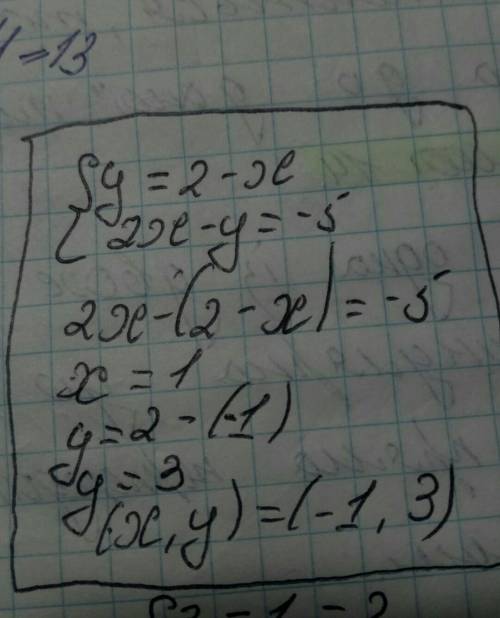 y = 13
{ y = 2 - x
2x - y = -5
2x - (2 - x) = -5
x = 1
y = 2 - (-1)
y = 3
(x, y) = (-1, 3)